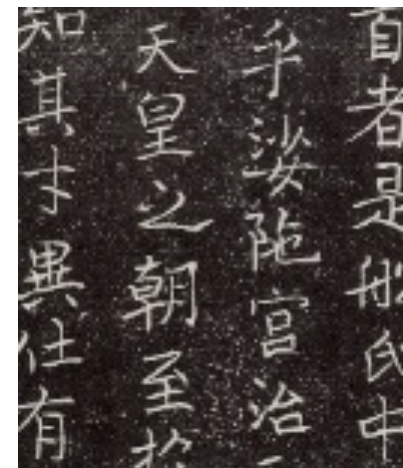 首者是舩氏中
乎娑陁宮治
天皇之朝至於
知其才異仕有